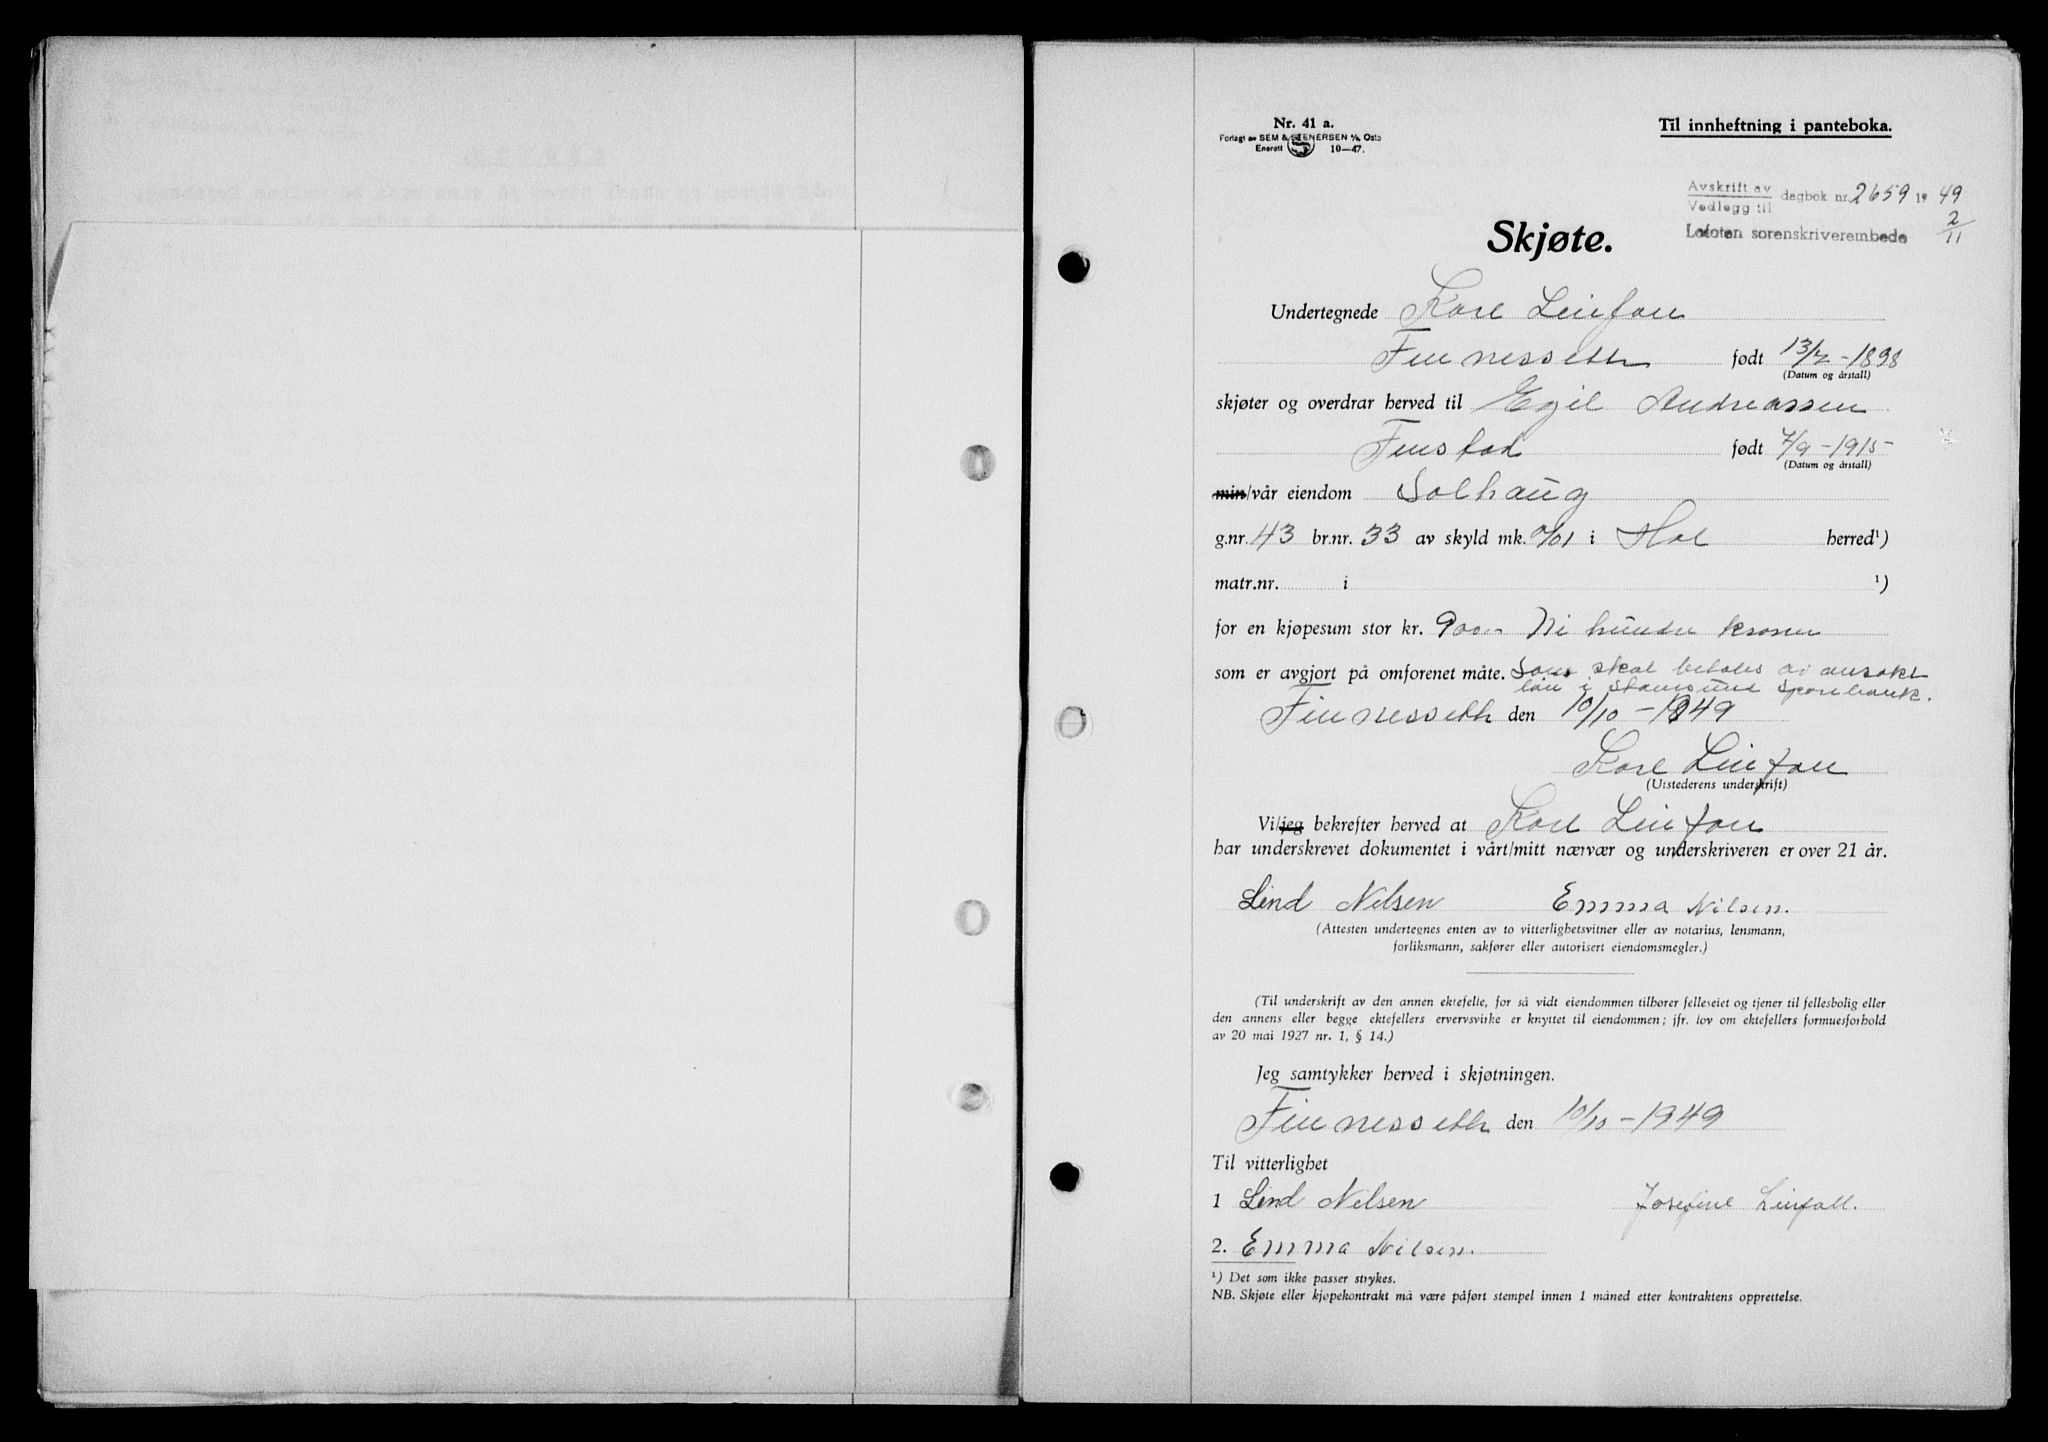 Nr. 41 a.
Forlagt av SEM & STENERSEN A/S, Oslo
Enerett 10—47.
Til innheftning i panteboka.
Avskrift av
Vedlegg til
dagbok nr. 2659 19 49
2/11
Lofoten sorenskriverembede
Skjøte.
Undertegnede Karl Leinfall
Finnesseth født 13/7-1898
(Datum og årstall)
skjøter og overdrar herved til Egil Andreassen
Finstad født 7/9-1915
(Datum og årstall)
min/vår eiendom Solhaug
g.nr. 43 br.nr. 33 av skyld mk. 0/01 i Hol herred¹)
matr.nr. i ¹)
for en kjøpesum stor kr. 900.- Ni hundre kroner
som er avgjort på omforenet måte. Som skal betales av ansøkt
lån i Stamsund Sparebank.
Finnesseth den 10/10-1949
Karl Leinfall
(Utstederens underskrift)
Vi/jeg bekrefter herved at Karl Leinfall
har underskrevet dokumentet i vårt/mitt nærvær og underskriveren er over 21 år.
Lind Nilsen Emma Nilsen.
(Attesten undertegnes enten av to vitterlighetsvitner eller av notarius, lensmann,
forliksmann, sakfører eller autorisert eiendomsmegler.)
(Til underskrift av den annen ektefelle, for så vidt eiendommen tilhører felleseiet og tjener til fellesbolig eller
den annens eller begge ektefellers ervervsvirke er knyttet til eiendommen; jfr. lov om ektefellers formuesforhold
av 20 mai 1927 nr. 1, § 14.)
Jeg samtykker herved i skjøtningen.
Finnesseth den 10/10-1949
Til vitterlighet
1 Lind Nilsen Josefine Leinfall.
2. Emma Nilsen.
¹) Det som ikke passer strykes.
NB. Skjøte eller kjøpekontrakt må være påført stempel innen 1 måned etter kontraktens opprettelse.